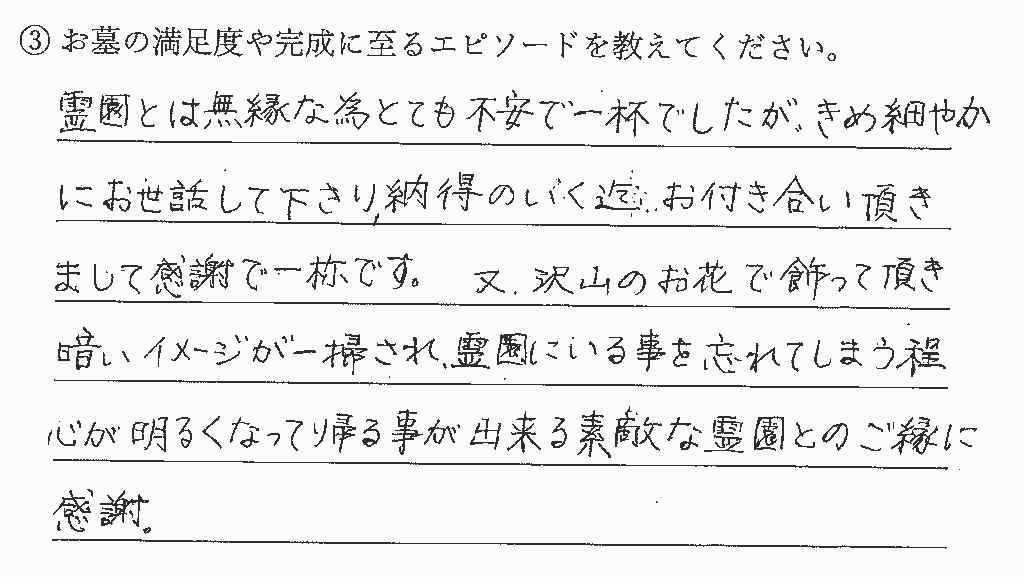 ③ お墓の満足度や完成に至るエピソードを教えてください。
霊園とは無縁な為とても不安で一杯でしたが、きめ細やか
にお世話して下さり、納得のいく迄、お付き合い頂き
まして感謝で一杯です。 又、沢山のお花で飾って頂き
暗いイメージが一掃され、霊園にいる事を忘れてしまう程
心が明るくなって帰る事が出来る素敵な霊園とのご縁に
感謝。